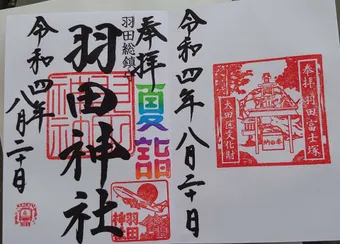 奉拝
羽田総鎮守
夏詣
羽田神社
令和四年八月二十日
羽田神社
令和四年八月二十日
奉拝 羽田富士塚
大田区文化財